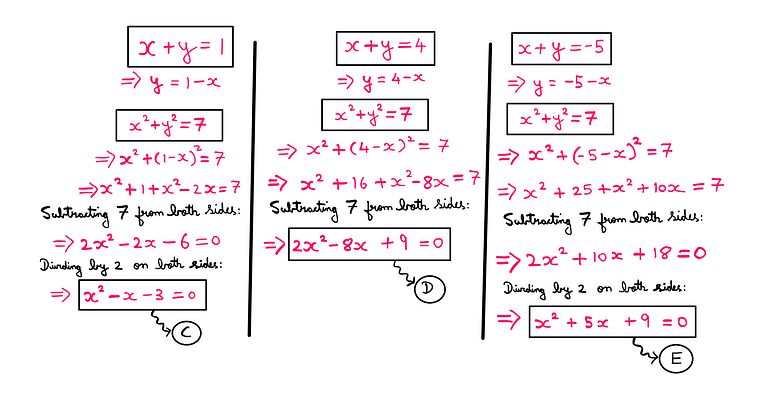 x + y = 1
⇒ y = 1 - x
x² + y² = 7
⇒ x² + (1-x)² = 7
⇒ x² + 1 + x² - 2x = 7
Subtracting 7 from both sides:
⇒ 2x² - 2x - 6 = 0
Dividing by 2 on both sides:
⇒ x² - x - 3 = 0
C
x + y = 4
⇒ y = 4 - x
x² + y² = 7
⇒ x² + (4-x)² = 7
⇒ x² + 16 + x² - 8x = 7
Subtracting 7 from both sides:
⇒ 2x² - 8x + 9 = 0
D
x + y = -5
⇒ y = -5 - x
x² + y² = 7
⇒ x² + (-5-x)² = 7
⇒ x² + 25 + x² + 10x = 7
Subtracting 7 from both sides:
⇒ 2x² + 10x + 18 = 0
Dividing by 2 on both sides:
⇒ x² + 5x + 9 = 0
E